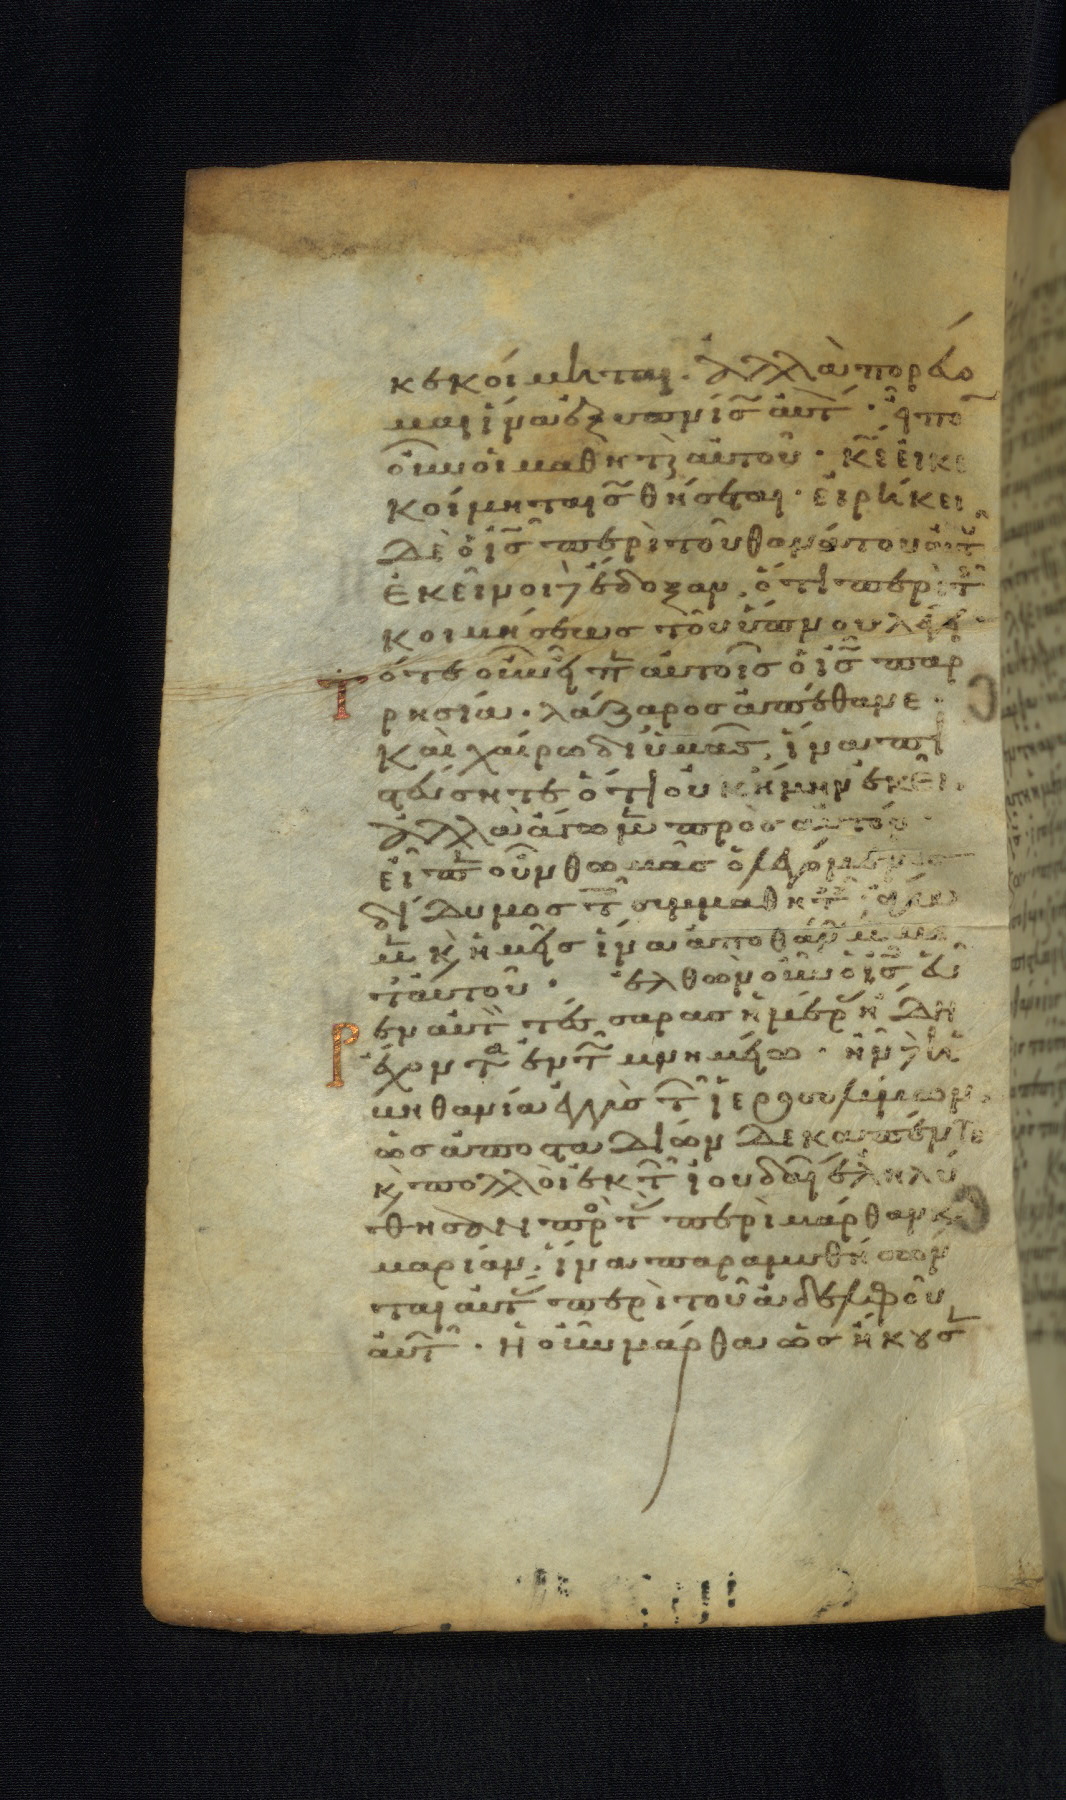 κεκοίμηται. ἀλλὰ πορεύο
μαι ἵνα ἐξυπνίσ αὐτ · εἶπο
οὖν οἱ μαθητ αὐτοῦ · κε εἰ κε
κοίμηται σθήσεται · εἰρήκει
δὲ ὁ ισ περὶ τοῦ θανάτου αὐτ
ἐκεῖνοι δὲ ἔδοξαν ὅτι περὶ τ
κοιμήσεως τοῦ ὕπνου λέγ ·
Τότε οὖν εἶπ αὐτοῖς ὁ ισ παρ
ρησία · λάζαρος ἀπέθανε ·
καὶ χαίρω δι ὑμᾶς, ἵνα πι
στεύσητε ὅτι οὐκ ἤμην ἐκεῖ
ἀλλὰ ἄγωμ πρὸς αὐτόν
εἶπ οὖν θωμᾶς ὁ λεγόμενος
δίδυμος τ συμμαθητ ἄγω
μ κ ἡμεῖς ἵνα ἀποθάνωμ με
τ αὐτοῦ · ἐλθὼν οὖν ὁ ισ εὗ
Ρεν αὐτ τέσσαρας ἡμέρ ἤδη
ἔχοντα ἐν τ μνημείω · ἦν δὲ ἡ
βηθανία ἐγγὺς τ ἱεροσολύμων
ὡς ἀπὸ σταδίων δεκαπέντε
κ πολλοὶ ἐκ τ ἰουδαί ἐληλύ
θησαν πρ τ περὶ μάρθαν κ
μαρίαν, ἵνα παραμυθήσων
ται αὐτ περὶ τοῦ ἀδελφοῦ
αὐτ · ἡ οὖν μάρθα ὡς ἤκουσ